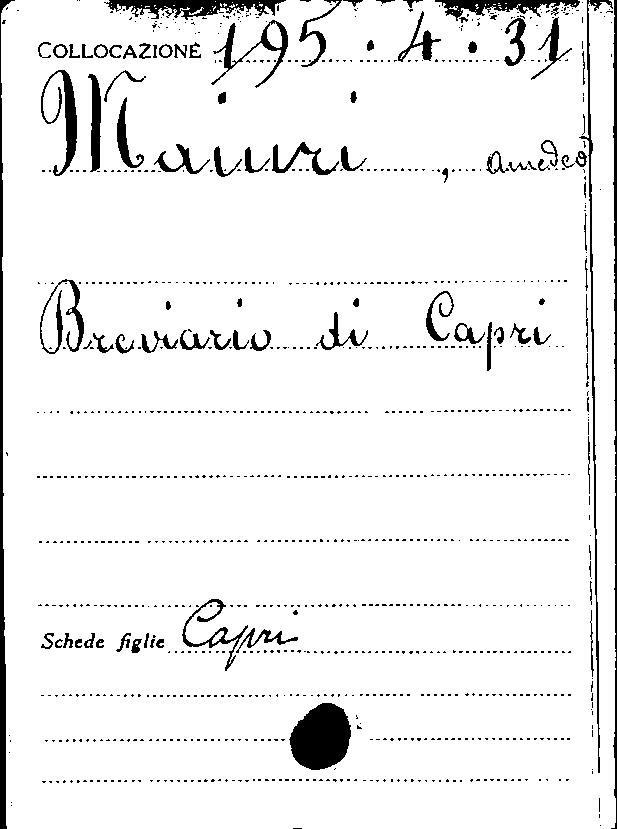 COLLOCAZIONE 195.4.31
Maiuri, Amedeo
Breviario di Capri
Schede figlie Capri